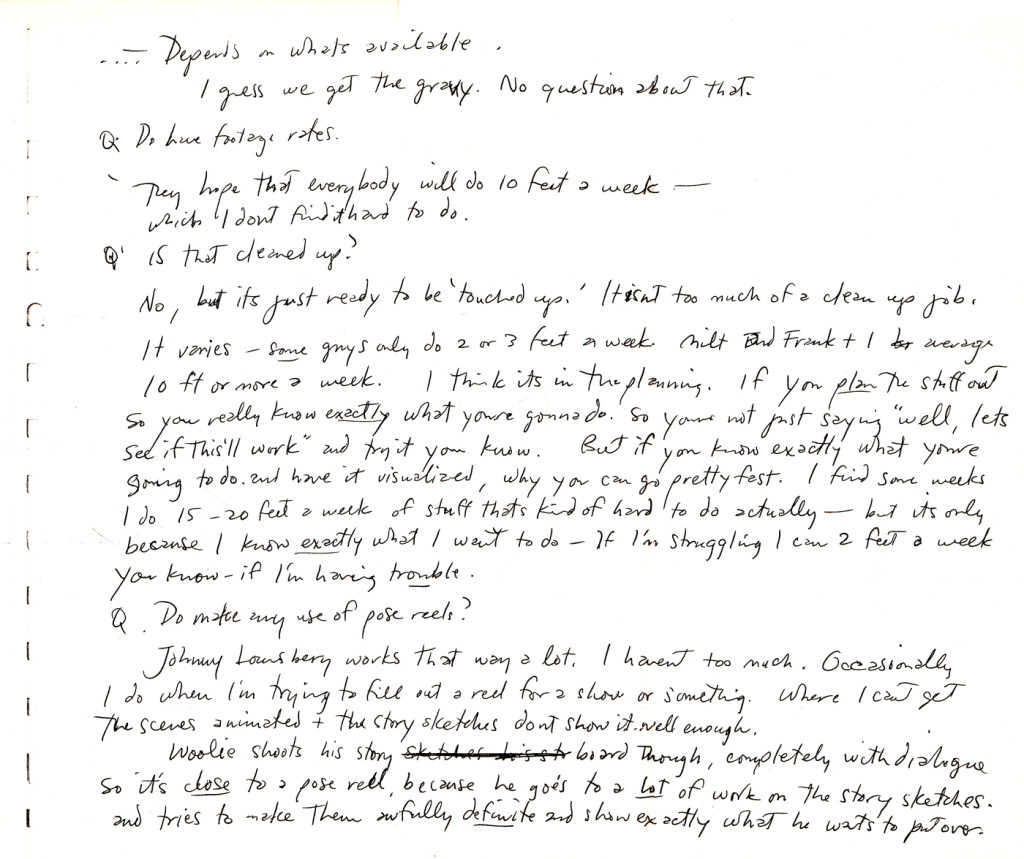 ..... Depends on whats available.
I guess we get the gravy. No question about that.
Q. Do have footage rates.
They hope that everybody will do 10 feet a week —
which I dont find it hard to do.
Q. Is that cleaned up?
No, but its just ready to be 'touched up.' It isnt too much of a clean up job.
It varies – some guys only do 2 or 3 feet a week. Milt and Frank + I average
10 ft or more a week. I think its in the planning. If you plan the stuff out
so you really know exactly what youre gonna do. So youre not just saying "well, lets
see if this'll work" and try it you know. But if you know exactly what youre
going to do. and have it visualized, why you can go pretty fast. I find some weeks
I do 15 – 20 feet a week of stuff thats kind of hard to do actually — but its only
because I know exactly what I want to do – If I'm struggling I can 2 feet a week
you know – if I'm having trouble.
Q. Do make any use of pose reels?
Johnny Lounsbery works that way a lot. I havent too much. Occasionally
I do when I'm trying to fill out a reel for a show or something. Where I can't get
the scenes animated + the story sketches dont show it well enough.
Woolie shoots his story sketches his st board though, completely with dialogue
so it's close to a pose reel, because he goes to a lot of work on the story sketches.
and tries to make them awfully definite and show exactly what he wants to put over.